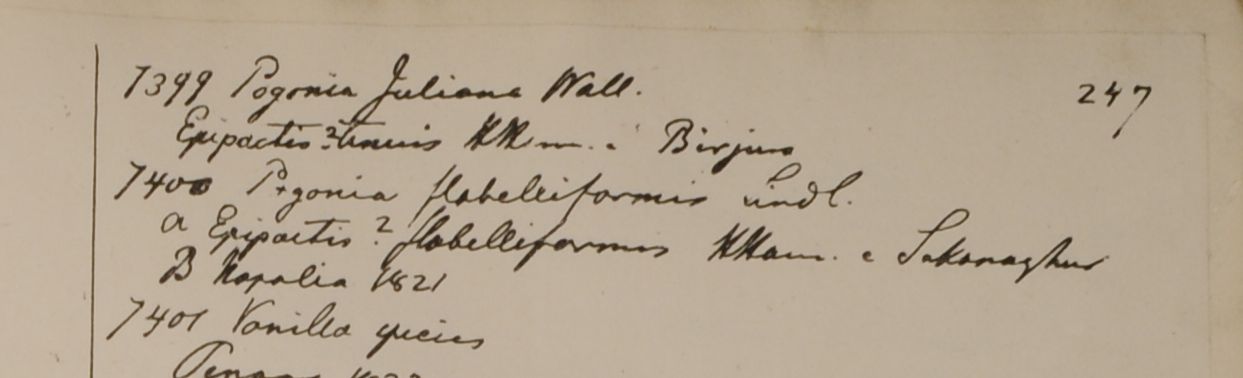 7399 Pogonia Juliana Wall. 247
Epipactis? tenuis HHam. e Birjura
7400 Pogonia flabelliformis Lindl.
a Epipactis? flabelliformis HHam. e Sakanaghur
B Napalia 1821
7401 Vanilla species